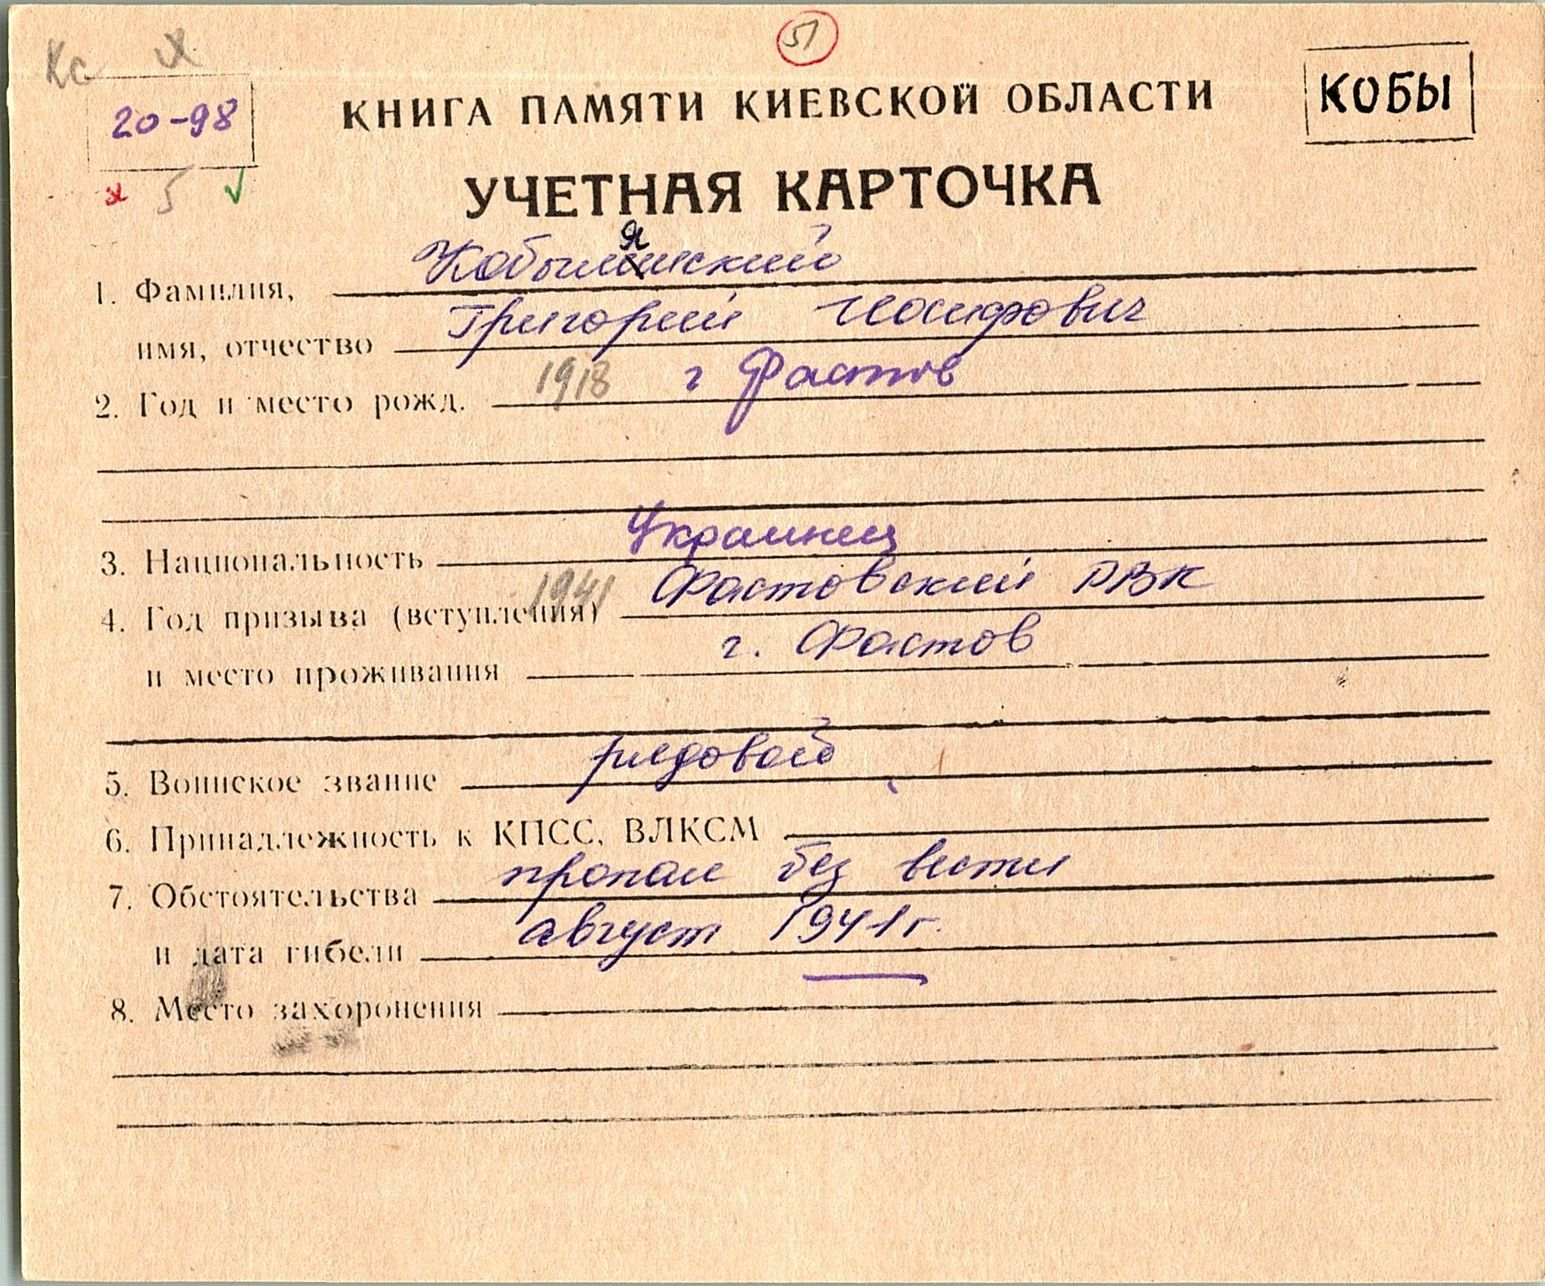 51
20-98
КНИГА ПАМЯТИ КИЕВСКОЙ ОБЛАСТИ
КОБЫ
5
УЧЕТНАЯ КАРТОЧКА
1. Фамилия, Кобылянский
имя, отчество Григорий Иосифович
2. Год и место рожд. 1918 г Фастов
3. Национальность Украинец
4. Год призыва (вступления) 1941 Фастовский РВК
и место проживания г. Фастов
5. Воинское звание рядовой
6. Принадлежность к КПСС, ВЛКСМ
7. Обстоятельства пропал без вести
и дата гибели август 1941 г.
8. Место захоронения